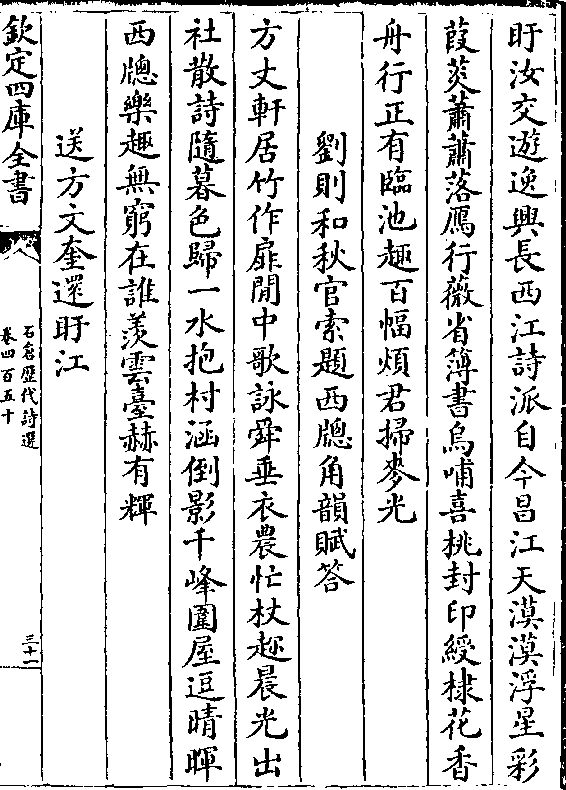 盱汝交遊逸興長西江詩派自今昌江天漠漠浮星彩
葭菼蕭蕭落鴈行薇省簿書烏哺喜桃封印綬棣花香
舟行正有臨池趣百幅煩君掃麥光
劉則和秋官索題西牕角韻賦答
方丈軒居竹作扉閒中歌詠舜垂衣農忙杖趂晨光出
社散詩隨暮色歸一水抱村涵倒影千峰圍屋逗晴暉
西牕樂趣無窮在誰羨雲臺赫有輝
送方文奎還盱江
欽定四庫全書
石倉歷代詩選
卷四百五十
三十一